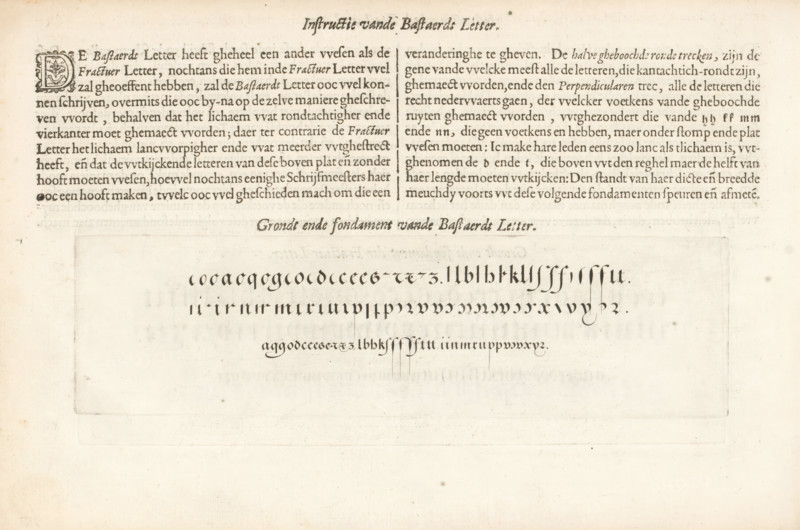 Instructie vande Bastaerde Letter.
DE Bastaerde Letter heeft gheheel een ander vvesen als de
Fractuer Letter, nochtans die hem inde Fractuer Letter vvel
zal gheoeffent hebben, zal de Bastaerdt Letter ooc vvel kon-
nen schrijven, overmits die ooc by-na op de zelve maniere gheschre-
ven vvordt, behalven dat het lichaem vvat rondtachtigher ende
vierkanter moet ghemaect vvorden; daer ter contrarie de Fractuer
Letter het lichaem lancvvorpigher ende vvat meerder vvtghestrect
heeft, eñ dat de vvtkijckende letteren van dese boven plat eñ zonder
hooft moeten vvesen, hoevvel nochtans eenighe Schrijfmeesters haer
ooc een hooft maken, tvvelc ooc vvel gheschieden mach om die een
veranderinghe te gheven. De halve gheboochde ronde trecken, zijn de
gene vande vvelcke meest alle de letteren, die kantachtich-rondt zijn,
ghemaect vvorden, ende den Perpendicularen trec, alle de letteren die
recht nedervvaerts gaen, der vvelcker voetkens vande gheboochde
ruyten ghemaect vvorden, vvtghezondert die vande hh ff mm
ende nn, die geen voetkens en hebben, maer onder stomp ende plat
vvesen moeten: Ic make hare leden eens zoo lanc als tlichaem is, vvt-
ghenomen de d ende t, die boven vvt den reghel maer de helft van
haer lengde moeten vvtkijcken: Den standt van haer dicte eñ breedde
meuchdy voorts vvt dese volgende fondamenten speuren eñ afmetẽ.
Grondt ende fondament vande Bastaerdt Letter.